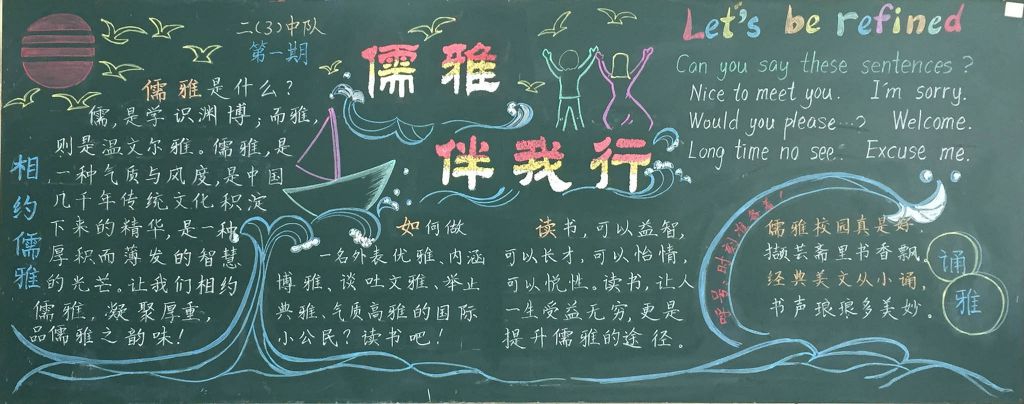 二(3)中队
第一期
儒雅
伴我行
相约儒雅
儒雅是什么？
儒，是学识渊博；而雅，
则是温文尔雅。儒雅，是
一种气质与风度，是中国
几千年传统文化积淀
下来的精华，是一种
厚积而薄发的智慧
的光芒。让我们相约
儒雅，凝聚厚重，
品儒雅之韵味！
如何做
一名外表优雅、内涵
博雅、谈吐文雅、举止
典雅、气质高雅的国际
小公民？读书吧！
读书，可以益智，
可以长才，可以怡情，
可以悦性。读书，让人
一生受益无穷，更是
提升儒雅的途径。
Let's be refined
Can you say these sentences?
Nice to meet you. I'm sorry.
Would you please...? Welcome.
Long time no see. Excuse me.
儒雅校园真是好，
撷芸斋里书香飘，
经典美文从小诵，
书声琅琅多美妙。
诵
雅